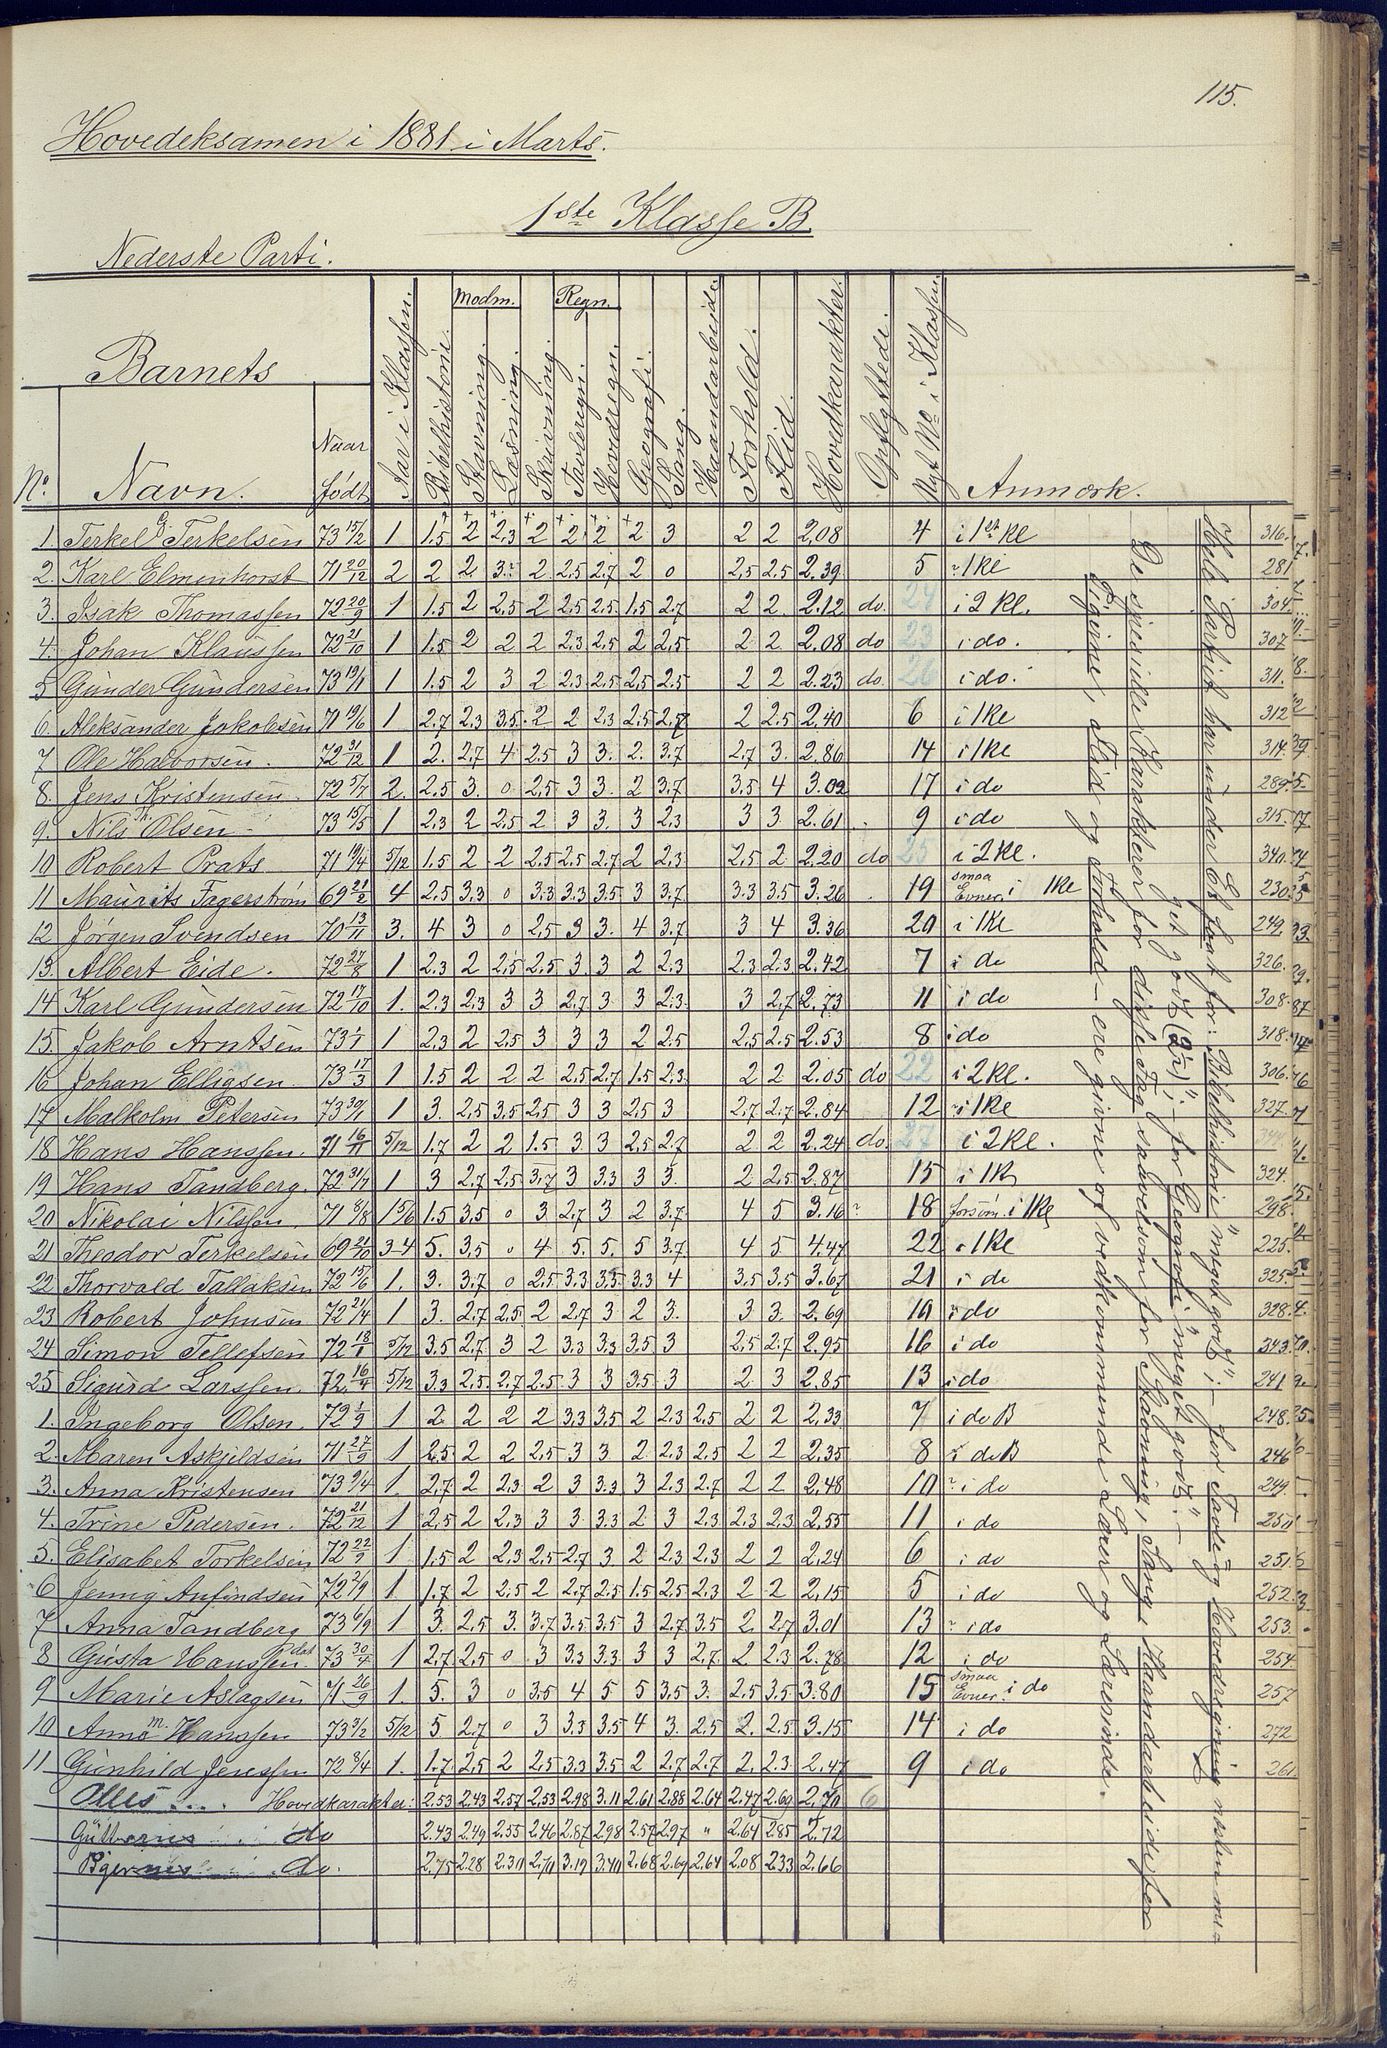 115.
Hovedeksamen i 1881 i Marts.
1ste Klasse B.
Nederste Parti.
Barnets
No. Navn. Naar født Aar i Klassen. Bibelhistorie. Modm. Stavning. Læsning. Skrivning. Regn. Tavleregn. Hovedregn. Geografi. Sang. Haandarbeide. Forhold. Flid. Hovedkarakter. Opflyttede. Nyt No i Klassen. Anmærk.
1. Terkel G. Terkelsen 73 15/2 1 1.5 2 2.3 2 2 2 2 3 2 2 2.08 4 i 1ste Kl 316.
2. Karl Elmenhorst 71 20/12 2 2 2 3 2 2.5 2.7 2 0 2.5 2.5 2.39 5 " 1 Kl 281
3. Isak Thomassen 72 20/9 1 1.5 2 2.5 2 2.5 2.5 1.5 2.7 2 2 2.12 do. 24 i 2 Kl. 304.
4. Johan Klaussen 72 21/10 1 1.5 2 2 2 2.3 2.5 2 2.5 2 2 2.08 do 23 i do. 307
5 Gunder Gundersen 73 19/1 1 1.5 2 3 2 2.3 2.5 2.5 2.5 2 2 2.23 do. 26 i do. 311.
6. Aleksander Jakobsen 71 19/6 1 2.7 2.3 3.5 2 2 2.3 2.5 2.7 2 2.5 2.40 6 i 1 Kl 312
7 Ole Halvorsen. 72 31/12 1 2. 2.7 4 2.5 3 3. 2 3.7 2.7 3. 2.86 14 i 1 Kl 314.
8. Jens Kristensen. 72 5/7 2. 2.5 3. 0 2.5 3 3. 2 3.7 3.5 4 3.02 17 i do 289
9. Nils Th. Olsen 73 15/5 1 2.3 2 2.5 2 3 3. 3 2.3 3 3 2.61 9 i do 315.
10 Robert Prats 71 19/4 5/12 1.5 2 2 2.5 2.5 2.7 2 2.3 2.5 2 2.20 do 25 i 2 Kl. 340.
11 Maurits Fagerstrøm 69 21/2 4 2.5 3.3 0 3.3 3.3 3.5 3 3.7 3.3 3.5 3.26 19 smaa Evner. i 1 Kl 230.
12. Jørgen Svendsen 70 13/11 3. 4 3 0 2.5 3 3. 4 3.7 3 4 3.36 20 i 1 Kl 249.
13. Albert Eide. 72 27/8 1 2.3 2 2.5 2.5 3 3 2 2.3 2.3 2.3 2.42 7 i do 326.
14 Karl Gundersen 72 17/10 1. 2.3 2.3 3 3 2.7 3 3 2.3 3 2.7 2.73 11 i do 308.
15. Jakob Arntsen 73 1/1 1 2.3 2 2.5 3 3 3 2 2.5 2.5 2.5 2.53 8 i do 318.
16 Johan Elligsen 73 17/3 1 1.5 2 2 2 2.5 2.7 1.5 2.3 2 2 2.05 do 22 i 2 Kl. 306.
17 Malkolm Petersen 73 30/1 1 3. 2.5 3.5 2.5 3 3 2.5 3 2.7 2.7 2.84 12 i 1 Kl 327.
18 Hans Hanssen. 71 16/11 5/12 1.7 2 2 1.5 3 3 2.5 2.7 2 2 2.24 do. 27 i 2 Kl. 344
19 Hans Tandberg. 72 31/7 1 3 2.7 2.5 3.7 3 3.3 3 3. 2 2.5 2.87 15 i 1 Kl 324.
20 Nikolai Nilssen 71 8/8 1 5/6 1.5 3.5 0 3 2.7 3 2 3.7 4 5 3.16 18 forsøm. i 1 Kl 298.
21 Theodor Terkelsen 69 21/10 3-4 5. 3.5 0 4 5. 5. 5 3.7 4 5 4.47 22 i 1 Kl 225.
22. Thorvald Tallaksen 72 15/6 1. 3. 3.7 0 2.5 3.3 3.5 3.3 4 3.5 3.5 3.67 21 i do 325.
23 Robert Johnsen 72 21/4 1 3. 2.7 2.5 2 2.7 3 2 3. 3 3. 2.69 10 i do 328.
24 Simon Tellefsen 72 18/1 5/12 3.5 2.7 3 2 3.3 3.3 3.5 3 2.5 2.7 2.95 16 i do 343.
25 Sigurd Larssen 72 16/4 5/12 3.3 2.5 2.7 2.5 3 3 3.5 3 2 3 2.85 13 i do 241
1. Ingeborg Olsen. 72 1/9 1 2. 2 2 2 3.3 3.5 2 2.3 2.5 2 2 2.33 7 i do B 248.
2. Maren Askjeldsen 71 27/9 1 2.5 2 2 2.5 3 3 2 2.3 2.5 2 2 2.35 8 i do B 246
3. Anna Kristensen 73 9/4 1. 2.7 2 2.3 2 3 3.3 3 2.3 2.7 2 2 2.48 10 " i do 249.
4. Trine Pedersen. 72 21/12 1 2.5 2 2.3 3 3 3.3 2 3 2.3 2.3 2.3 2.55 11 i do 250
5. Elisabet Torkelsen 72 22/9 1 1.5 2 2.3 2.5 2.7 3 2 2.3 2.3 2 2 2.24 6 i do 251.
6 Jenny Anfindsen 72 2/9 1 1.7 2 2.5 2 2.7 2.5 1.5 2.5 2.3 2 2 2.15 5 i do 252.
7 Anna Tandberg 73 6/9 1 3. 2.5 3. 3.7 3.5 3.5 3 2.7 3.5 2. 2.7 3.01 13 " i do 253
8 Gusta Hanssen 73 30/4 1 2.7 2.5 0 3 3.3 3.3 3 3 2.7 2 2.3 2.78 12 i do 254.
9 Marie Aslagsen 71 26/9 1. 5. 3 0 3.5 4 5 5 3.5 3. 2.5 3.5 3.80 15 smaa Evner. i do 257
10 Anna M. Hanssen 73 3/2 5/12 5 2.7 0 3 3.3 3.5 4 3. 2.5 2. 2.5 3.15 14 i do 272
11 Gunhild Jenssen 72 8/4 1. 1.7 2.5 2 2.5 3.3 3.5 2 2.7 2.7 2. 2.3 2.47 9 i do 261
Alles . . . Hovedkarakter: 2.53 2.43 2.57 2.53 2.98 3.11 2.61 2.88 2.64 2.47 2.69 2.70 6
Gutternes do 2.43 2.49 2.55 2.46 2.87 2.98 2.57 2.97 " 2.64 2.85 2.72
Pigernes do. 2.75 2.28 2.30 2.70 3.19 3.40 2.68 2.69 2.64 2.08 2.33 2.66
Hele Partiet har under Et faaet for: Bibelhistorie "meget godt"; – for Tavle og Hovedregning nesten me-
get godt (2½); – for Geografi "meget godt". –
De specielle Karakterer for disse Fag saavelsom for Skrivning, Sang, Haandarbeide for
Pigerne, Flid og Forhold – ere givne af vedkommende Lærer og Lærerinde.